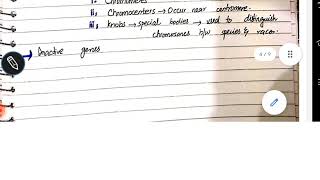 i. Chromomeres
ii, Chromocenters → Occur near centromere.
iii, knobs → special bodies → used to distinguish
chromosomes b/w species & races.
→ Inactive genes
4/9